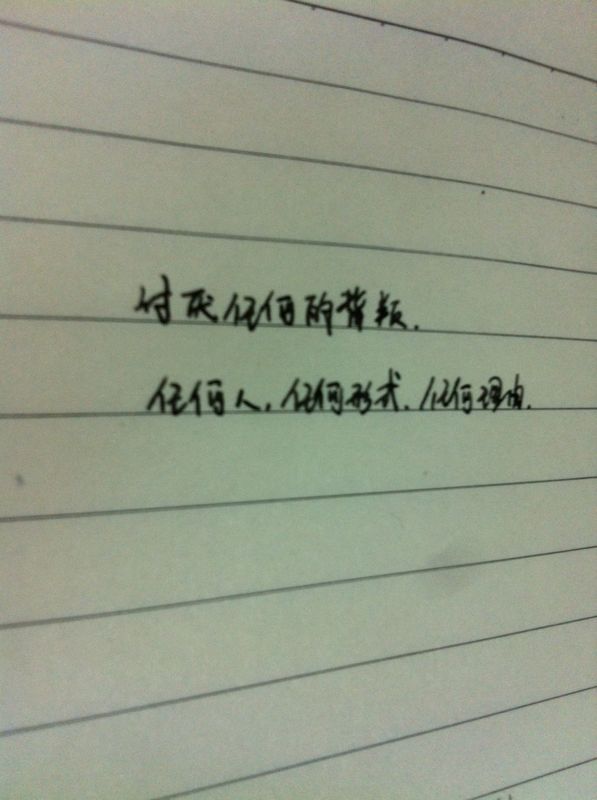 讨厌任何的背叛.
任何人,任何形式.任何理由.